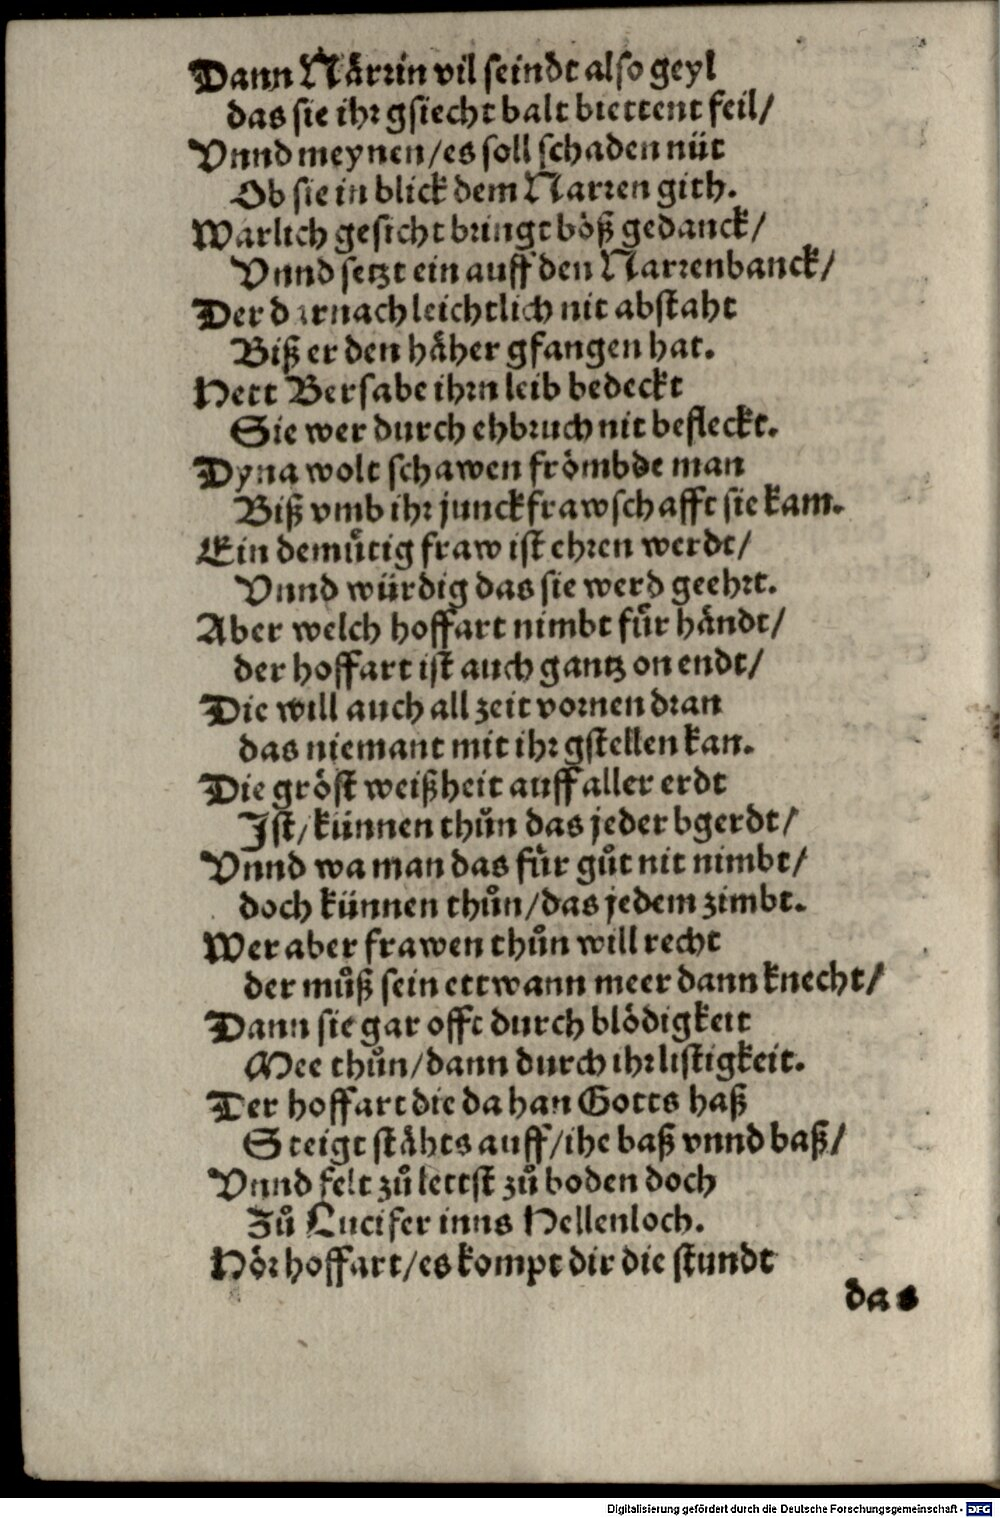 Dann Närrin vil seindt also geyl
das sie ihr gsiecht balt biettent feil/
Vnnd meynen/es soll schaden nüt
Ob sie in blick dem Narren gith.
Warlich gesicht bringt böß gedanck/
Vnnd setzt ein auff den Narrenbanck/
Der darnach leichtlich nit abstaht
Biß er den häher gfangen hat.
Hett Bersabe ihrn leib bedeckt
Sie wer durch ehbruch nit befleckt.
Dyna wolt schawen frömbde man
Biß vmb ihr junckfrawschafft sie kam.
Ein demütig fraw ist ehren werdt/
Vnnd würdig das sie werd geehrt.
Aber welch hoffart nimbt für händt/
der hoffart ist auch gantz on endt/
Die will auch all zeit vornen dran
das niemant mit ihr gstellen kan.
Die gröst weißheit auff aller erdt
Ist/künnen thůn das jeder bgerdt/
Vnnd wa man das für gůt nit nimbt/
doch künnen thůn/das jedem zimbt.
Wer aber frawen thůn will recht
der můß sein ettwann meer dann knecht/
Dann sie gar offt durch blödigkeit
Mee thůn/dann durch ihr listigkeit.
Der hoffart die da han Gotts haß
Steigt stähts auff/ihe baß vnnd baß/
Vnnd felt zů lettst zů boden doch
Zů Lucifer inns Hellenloch.
Hör hoffart/es kompt dir die stundt
das
Digitalisierung gefördert durch die Deutsche Forschungsgemeinschaft - DFG